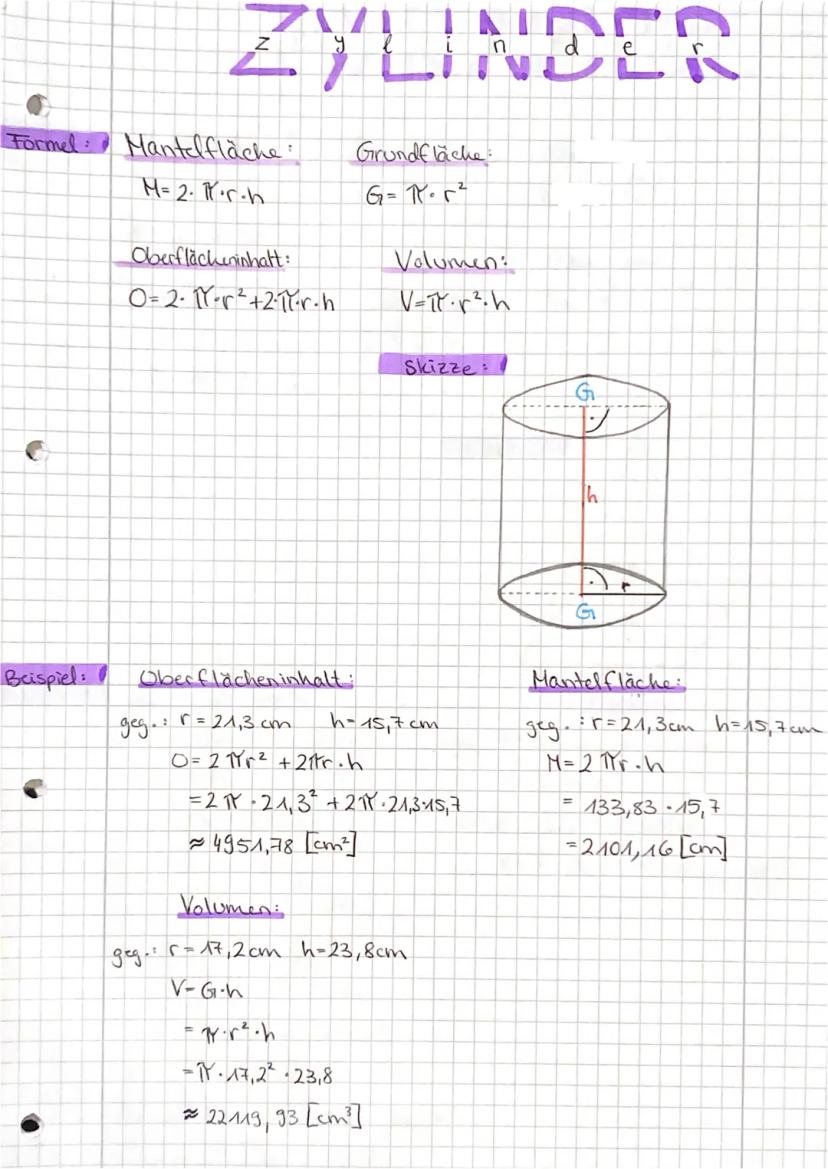 ZYLINDER
zylinder
Formel:
Mantelfläche: Grundfläche:
M= 2·π·r·h G= π·r²
Oberflächeninhalt: Volumen:
O= 2·π·r²+2·π·r·h V=π·r²·h
Skizze:
G
h
r
G
Beispiel:
Oberflächeninhalt:
geg.: r = 21,3 cm h=15,7 cm
O= 2πr² + 2πr·h
=2π·21,3² + 2π·21,3·15,7
≈ 4951,78 [cm²]
Mantelfläche:
geg.: r=21,3cm h=15,7cm
M= 2πr·h
= 133,83·15,7
=2101,16 [cm]
Volumen:
geg.: r=17,2cm h=23,8cm
V=G·h
= π·r²·h
=π·17,2²·23,8
≈ 22119,93 [cm³]